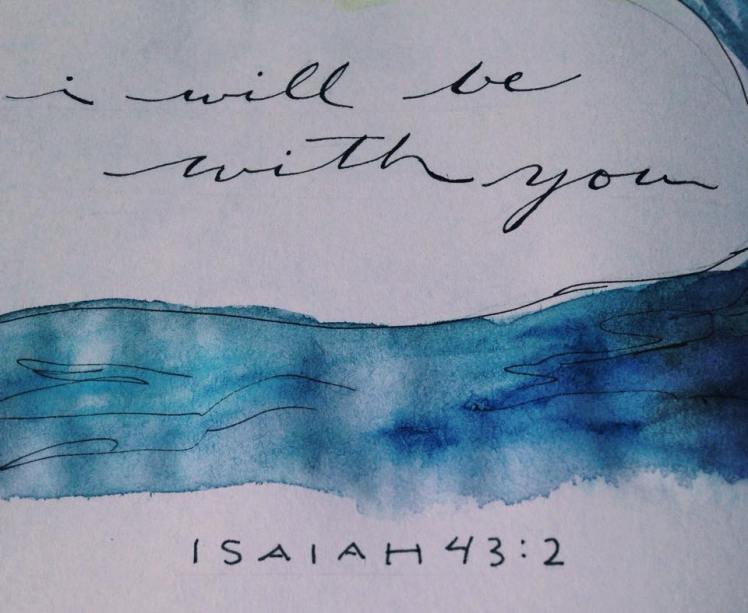 i will be
with you
ISAIAH 43:2